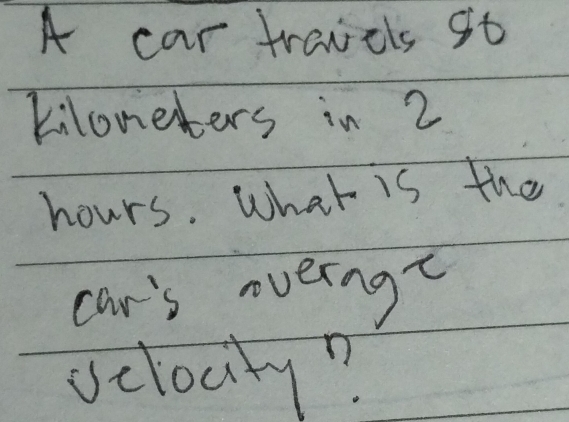 A car travels 80
kilometers in 2
hours. What is the
car's average
velocity?